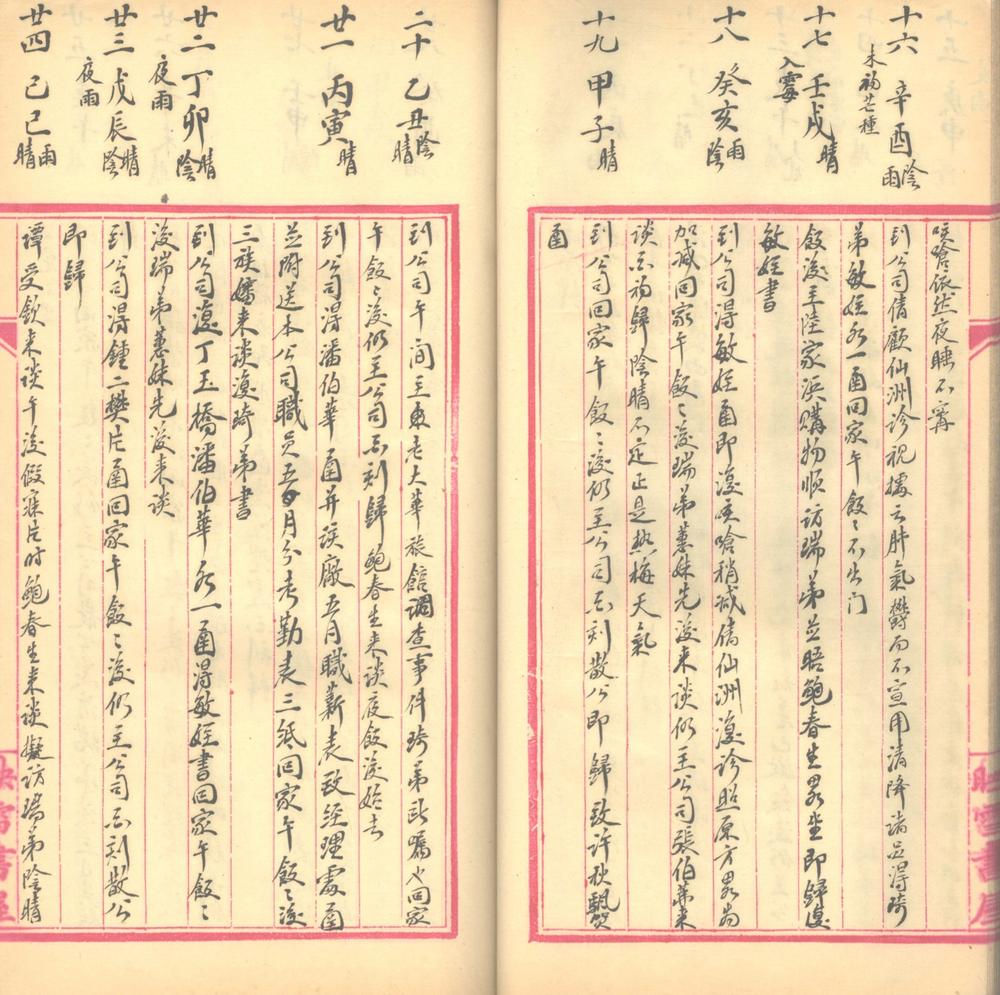 十六 辛酉 陰雨
未初芒種
十七 壬戌 晴
入霉
十八 癸亥 雨陰
十九 甲子 晴
咳嗆依然夜睡不寧
到公司倩顧仙洲診視據云肺氣鬱而不宣用清降諸品得琦
弟敏姪各一函回家午飯飯後不出门
飯後至陸家浜購物順訪瑞弟並晤鮑春生畧坐即歸復
敏姪書
到公司得敏姪函即復咳嗆稍減倩仙洲復診照原方畧爲
加減回家午飯飯後瑞弟蕙妹先後来談仍至公司張伯華来
談 初歸陰晴不定正是熱梅天氣
到公司回家午飯飯後仍至公司 刻散公即歸致許秋 
函
二十 乙丑 陰晴
廿一 丙寅 晴
廿二 丁卯 晴陰
夜雨
廿三 戊辰 晴陰
夜雨
廿四 己巳 雨晴
到公司午间至 老大華旅館調查事件琦弟 囑也回家
午飯飯後仍至公司 刻歸鮑春生来談夜飯後始去
到公司得潘伯華函并該廠五月職薪表致經理處函
並附送本公司職員五月分考勤表三紙回家午飯飯後
三族嬸来談復琦弟書
到公司復丁玉橋潘伯華各一函得敏姪書回家午飯飯
後瑞弟蕙妹先後来談
到公司得鍾二樊片函回家午飯飯後仍至公司 刻散公
即歸
譚受欽来談午後假寐片时鮑春生来談擬訪瑞弟陰晴
映雪書屋